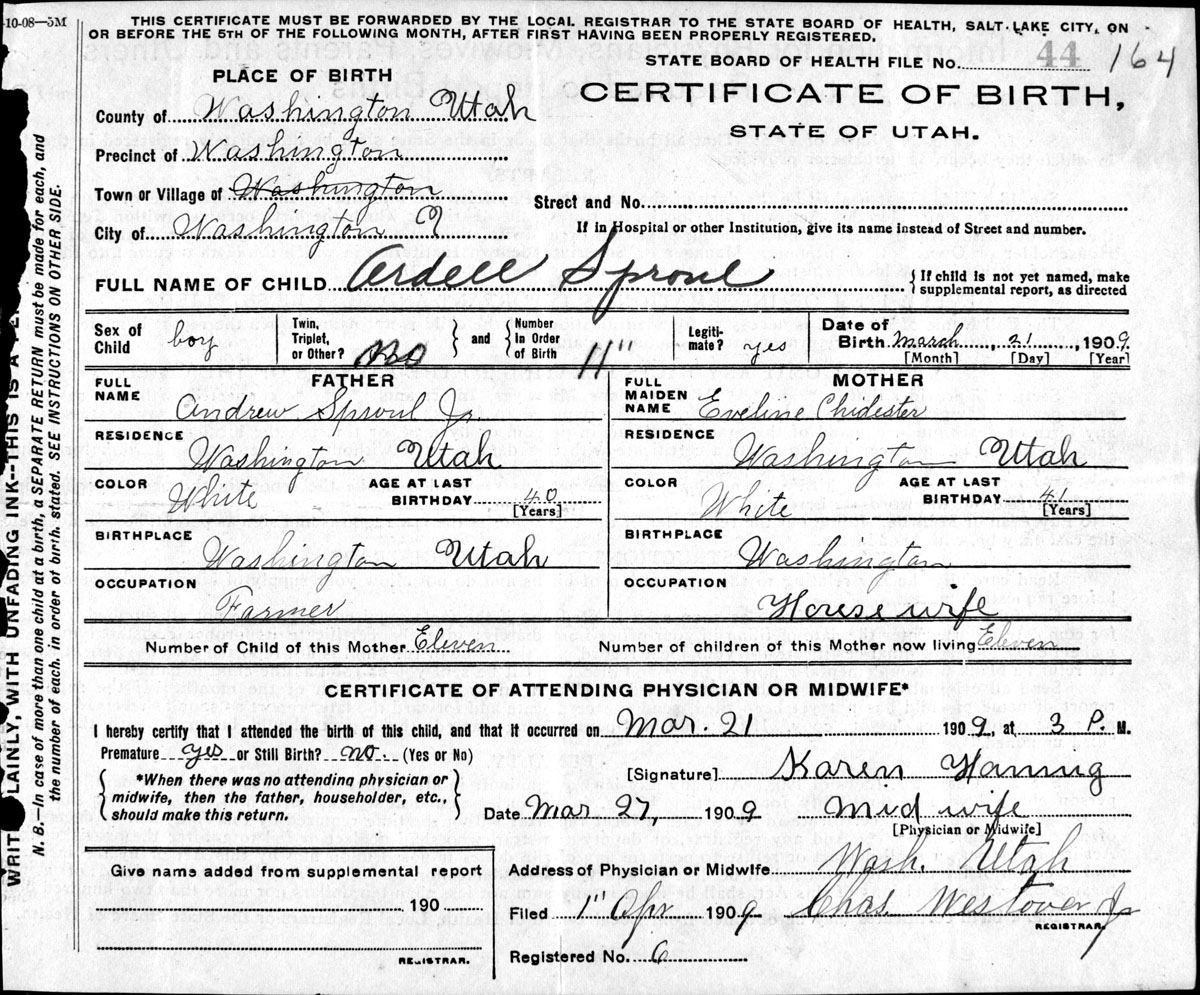 -10-08—5M
THIS CERTIFICATE MUST BE FORWARDED BY THE LOCAL REGISTRAR TO THE STATE BOARD OF HEALTH, SALT LAKE CITY, ON
OR BEFORE THE 5TH OF THE FOLLOWING MONTH, AFTER FIRST HAVING BEEN PROPERLY REGISTERED.
STATE BOARD OF HEALTH FILE No. 44 164
PLACE OF BIRTH
CERTIFICATE OF BIRTH,
STATE OF UTAH.
County of Washington Utah
Precinct of Washington
Town or Village of Washington
Street and No.
City of Washington
If in Hospital or other Institution, give its name instead of Street and number.
FULL NAME OF CHILD Ardell Sproul
{If child is not yet named, make
supplemental report, as directed
Sex of Child boy
Twin, Triplet, or Other? No } and { Number in Order of Birth 11"
Legiti-mate? yes
Date of Birth March 21, 1909
[Month] [Day] [Year]
FATHER
FULL NAME Andrew Sproul Jr.
RESIDENCE Washington Utah
COLOR White AGE AT LAST BIRTHDAY 40 [Years]
BIRTHPLACE Washington Utah
OCCUPATION Farmer
MOTHER
FULL MAIDEN NAME Eveline Chidester
RESIDENCE Washington Utah
COLOR White AGE AT LAST BIRTHDAY 41 [Years]
BIRTHPLACE Washington
OCCUPATION House wife
Number of Child of this Mother Eleven Number of children of this Mother now living Eleven
CERTIFICATE OF ATTENDING PHYSICIAN OR MIDWIFE*
I hereby certify that I attended the birth of this child, and that it occurred on Mar. 21 1909, at 3 P. M.
Premature yes or Still Birth? no. (Yes or No)
{*When there was no attending physician or
midwife, then the father, householder, etc.,
should make this return.}
[Signature] Karen Hannig
Date Mar 27, 1909 Mid wife
[Physician or Midwife]
Give name added from supplemental report
190
REGISTRAR.
Address of Physician or Midwife Wash. Utah
Filed 1" Apr 1909 Chas. Westover Jr
REGISTRAR.
Registered No. 6
LAINLY, WITH UNFADING INK--THIS IS A
N. B.—In case of more than one child at a birth, a SEPARATE RETURN must be made for each, and
the number of each, in order of birth, stated. SEE INSTRUCTIONS ON OTHER SIDE.